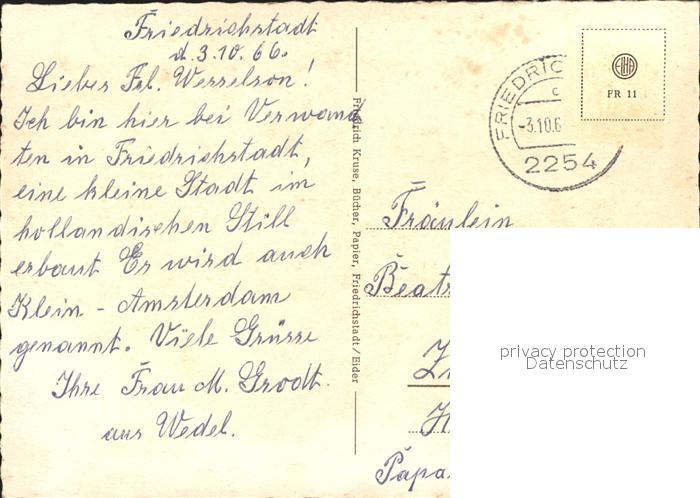 Friedrichstadt
d. 3.10.66.
Lieber Frl. Wesselson!
Ich bin hier bei Verwand
ten in Friedrichstadt,
eine kleine Stadt im
hollandischen Still
erbaut Er wird auch
Klein - Amsterdam
genannt. Viele Grüsse
Ihre Frau M. Grodt.
aus Wedel.
Friedrich Kruse, Bücher, Papier, Friedrichstadt / Eider
FRIEDRIC
c
-3.10.6
2254
EHB
FR 11
Fräulein
Beatr
Papa
privacy protection
Datenschutz